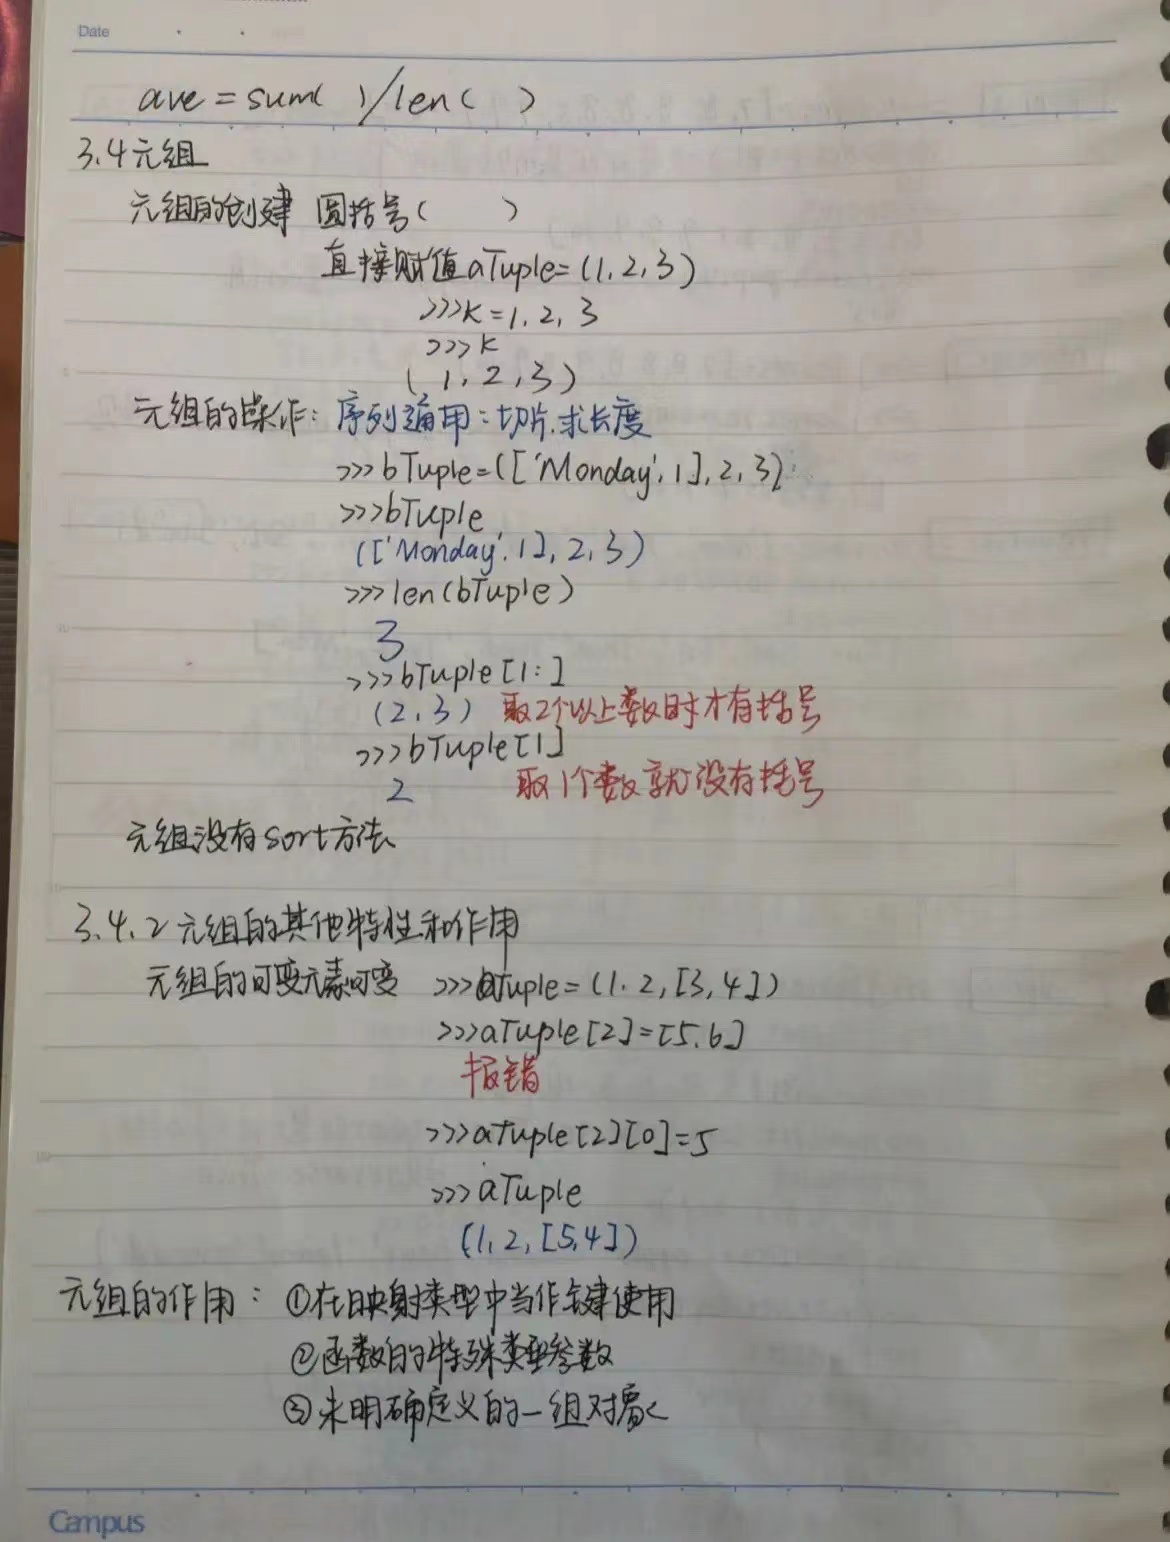 Date
ave = sum( )/len( )
3.4 元组
元组的创建 圆括号( )
直接赋值 aTuple=(1,2,3)
>>>K=1,2,3
>>>K
(1,2,3)
元组的操作: 序列通用:切片.求长度
>>>bTuple=(['Monday',1],2,3)
>>>bTuple
(['Monday',1],2,3)
>>>len(bTuple)
3
>>>bTuple[1:]
(2,3) 取2个以上数时才有括号
>>>bTuple[1]
2 取1个数就没有括号
元组没有sort方法
3.4.2 元组的其他特性和作用
元组的可变元素可变 >>>aTuple=(1,2,[3,4])
>>>aTuple[2]=[5,6]
报错
>>>aTuple[2][0]=5
>>>aTuple
(1,2,[5,4])
元组的作用: ①在映射类型中当作键使用
②函数的特殊类型参数
③未明确定义的一组对象
Campus